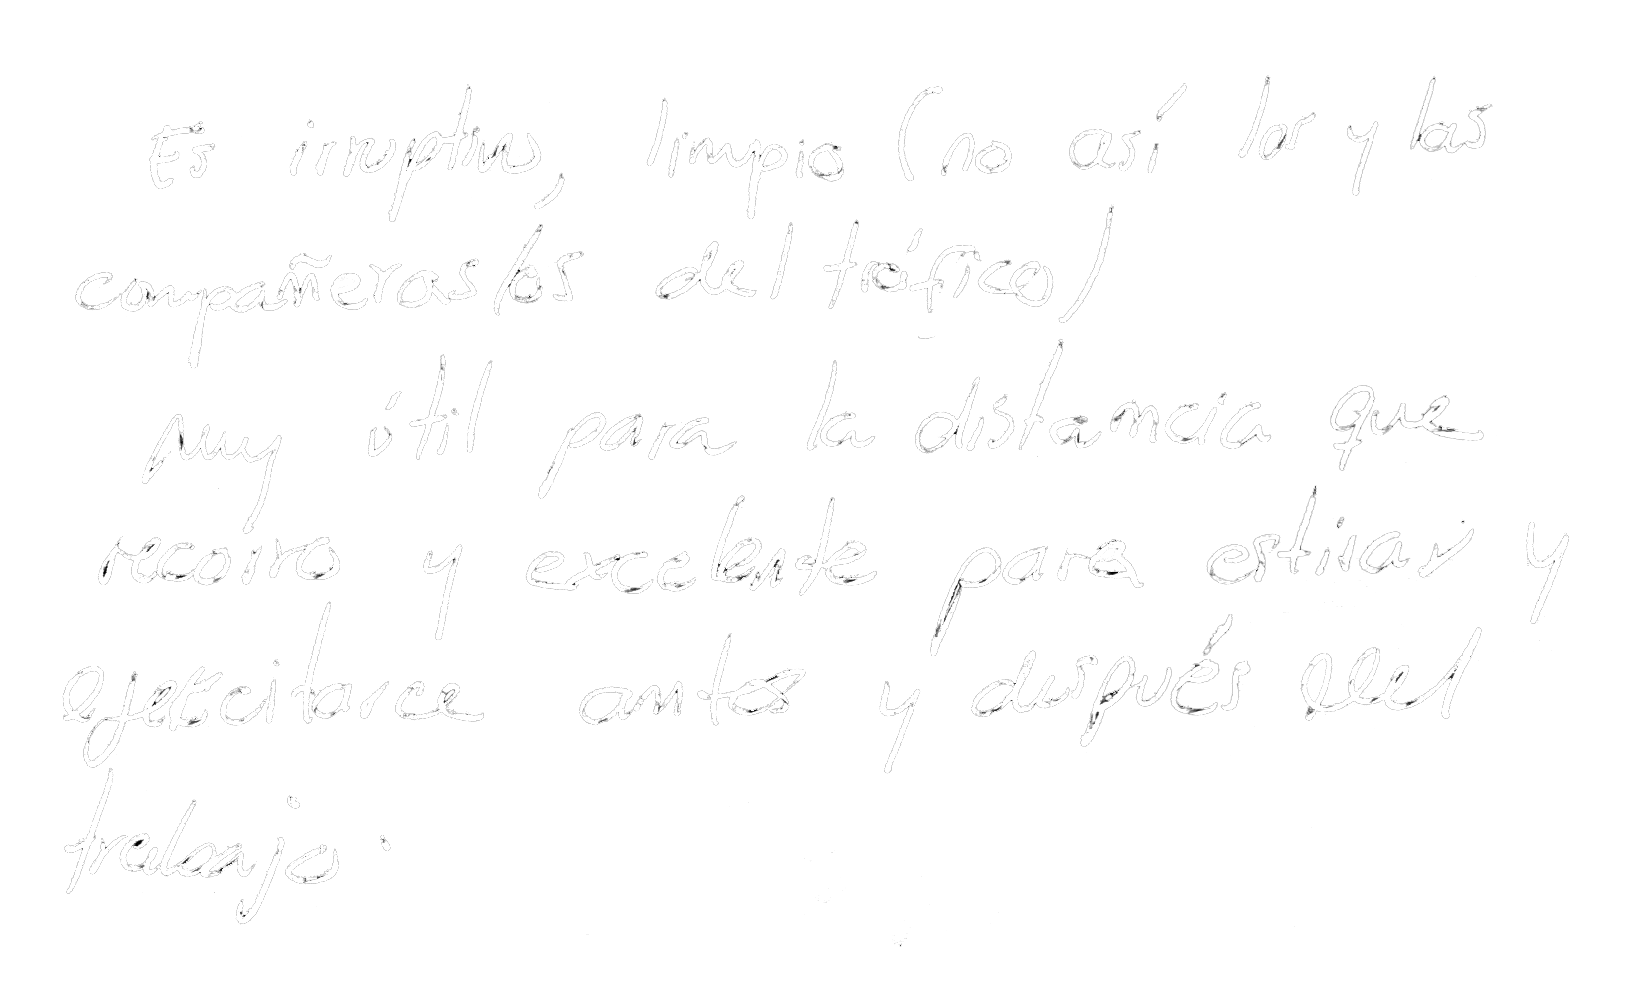 Es irruptivo, limpio (no así los y las
compañeras/os del tráfico)
Muy útil para la distancia que
recorro y excelente para estirar y
ejercitarce antes y después del
trabajo.